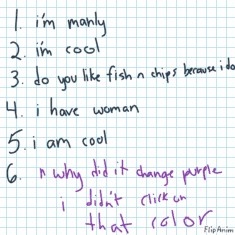 1. i'm manly
2. i'm cool
3. do you like fish n chips because i do
4. i have woman
5. i am cool
6. n why did it change purple
i didn't click on
that color
FlipAnim